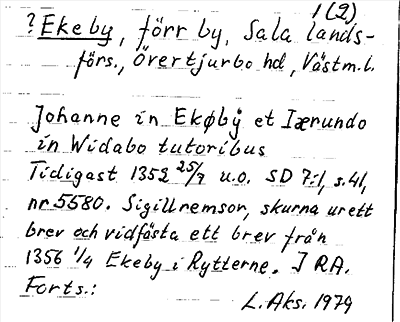 1(2)
? Ekeby, förr by, Sala lands-
förs., Övertjurbo hd, Västm.l.
Johanne in Ekøbÿ et Iærundo
in Widabo tutoribus
Tidigast 1352 25/7 u.o. SD 7:1, s.41,
nr 5580. Sigillremsor, skurna ur ett
brev och vidfästa ett brev från
1356 1/4 Ekeby i Rytterne. I RA.
Forts.:
L. Aks. 1979